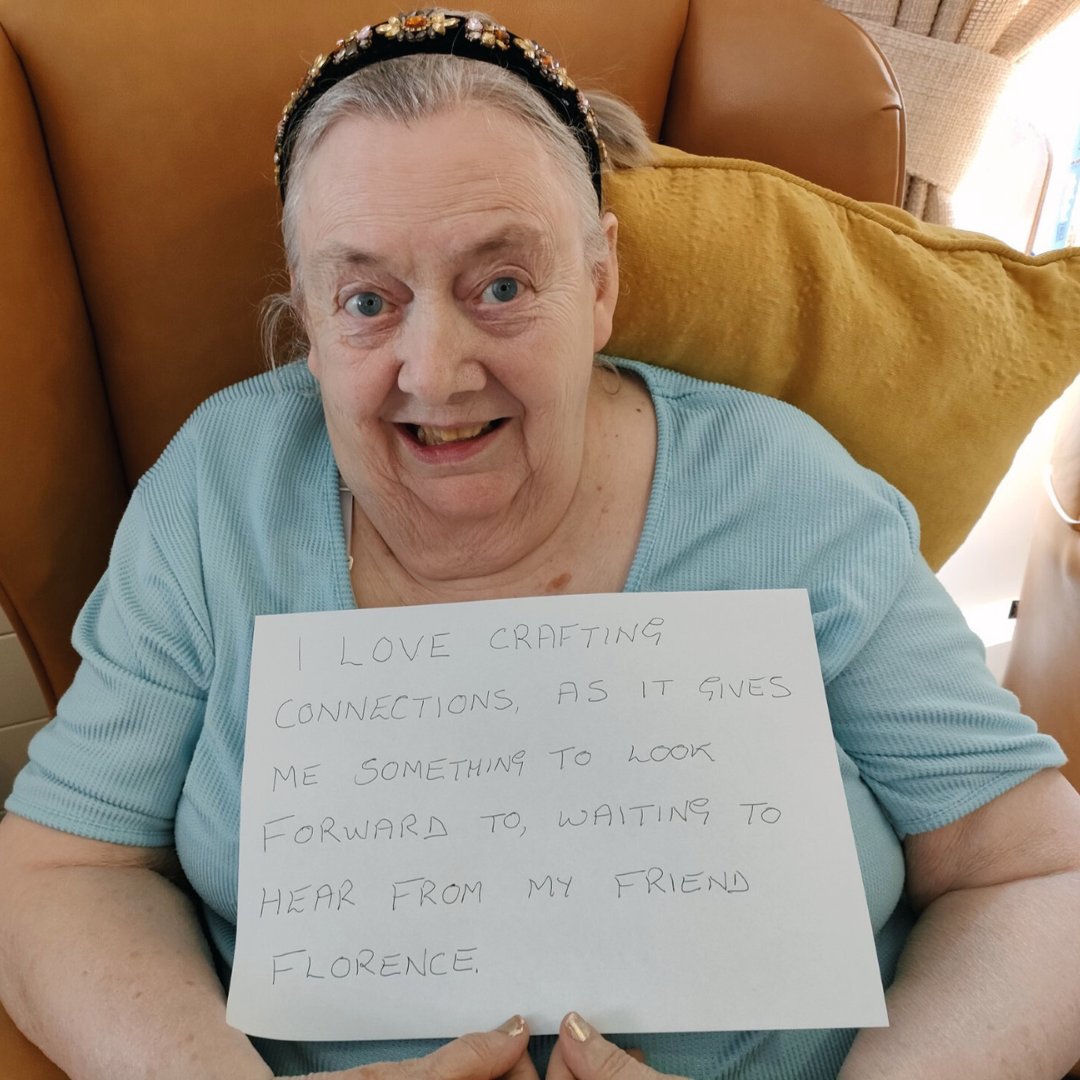 I LOVE CRAFTING
CONNECTIONS, AS IT GIVES
ME SOMETHING TO LOOK
FORWARD TO, WAITING TO
HEAR FROM MY FRIEND
FLORENCE.